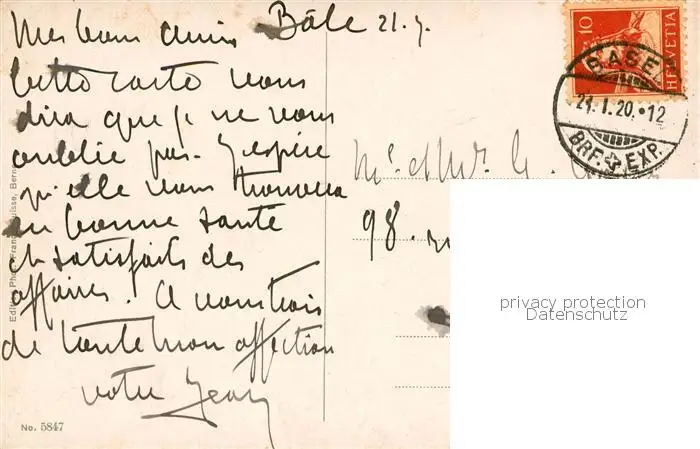 Mes bons amis Bâle 21. 1.
Cette carte vous
dira que je ne vous
oublie pas. J'espère
qu'elle vous trouvera
en bonne santé
et satisfaits des
affaires. A vous trois
de toute mon affection
votre Jean
No. 5847
Mr et Mme G.
98.
10
HELVETIA
BASEL
21. I. 20. 12
BRF. EXP.
privacy protection
Datenschutz